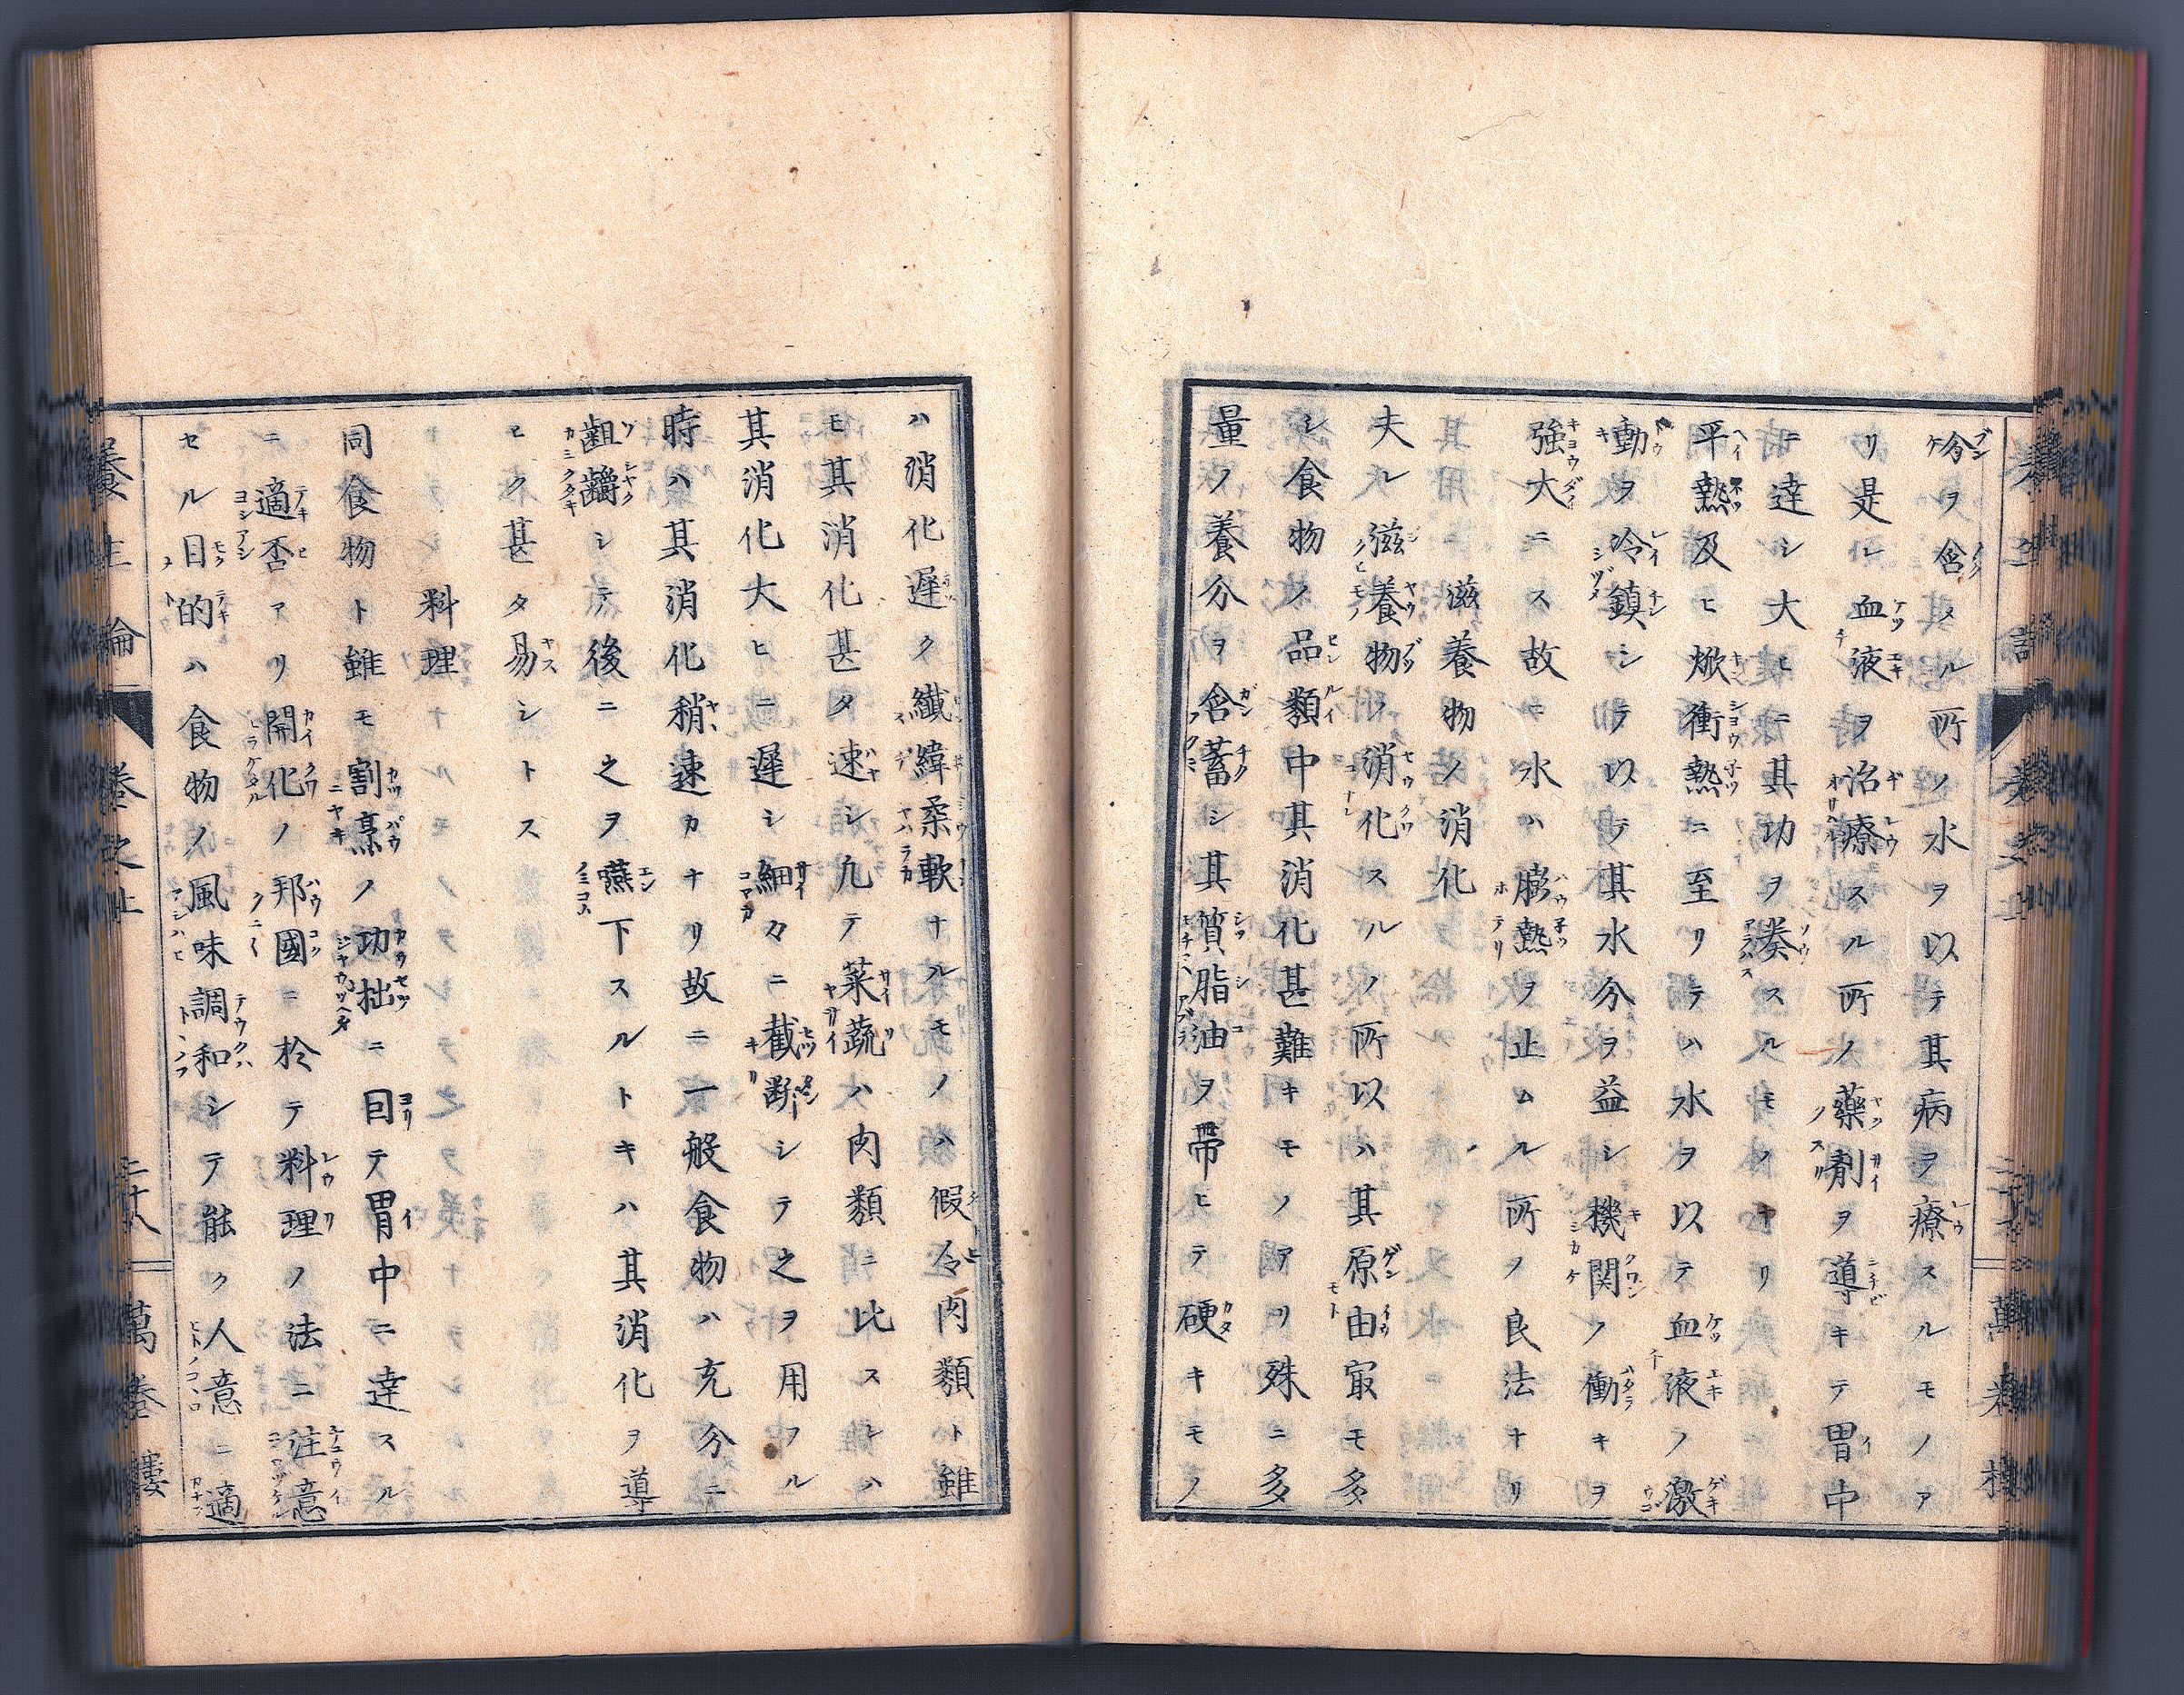 ヲ含メル所ノ水ヲ以テ其病ヲ療スルモノア
リ是レ血液ヲ治療スル所ノ藥剤ヲ導キテ胃中
ニ達シ大ヒニ其功ヲ奏スルモノナリ
平熱及ヒ焮衝熱ニ至リテハ水ヲ以テ血液ノ激
動ヲ冷鎮シ以テ其水分ヲ益シ機関ノ働キヲ
強大ニス故ニ水ハ膨熱ヲ止ムル所ノ良法ナリ
滋養物ノ消化
夫レ滋養物ノ消化スルノ所以ハ其原由冣モ多
シ食物ノ品類中其消化甚難キモノアリ殊ニ多
量ノ養分ヲ含蓄シ其質脂油ヲ帶ヒテ硬キモノ
ハ消化遲ク纖緯柔軟ナルモノハ假令肉類ト雖
モ其消化甚タ速シ凢テ菜蔬ハ肉類ニ比スレハ
其消化大ヒニ遲シ細々ニ截斷シテ之ヲ用フル
時ハ其消化稍速カナリ故ニ一般食物ハ充分ニ
齟嚼シテ後ニ之ヲ嚥下スルトキハ其消化ヲ導
ヒク甚タ易シトス
料理
同食物ト雖モ割烹ノ功拙ニ因テ胃中ニ達スル
ニ適否アリ開化ノ邦國ニ於テ料理ノ法ニ注意
セル目的ハ食物ノ風味調和シテ能ク人意ニ適
養生論 卷之上 二十八 萬卷樓